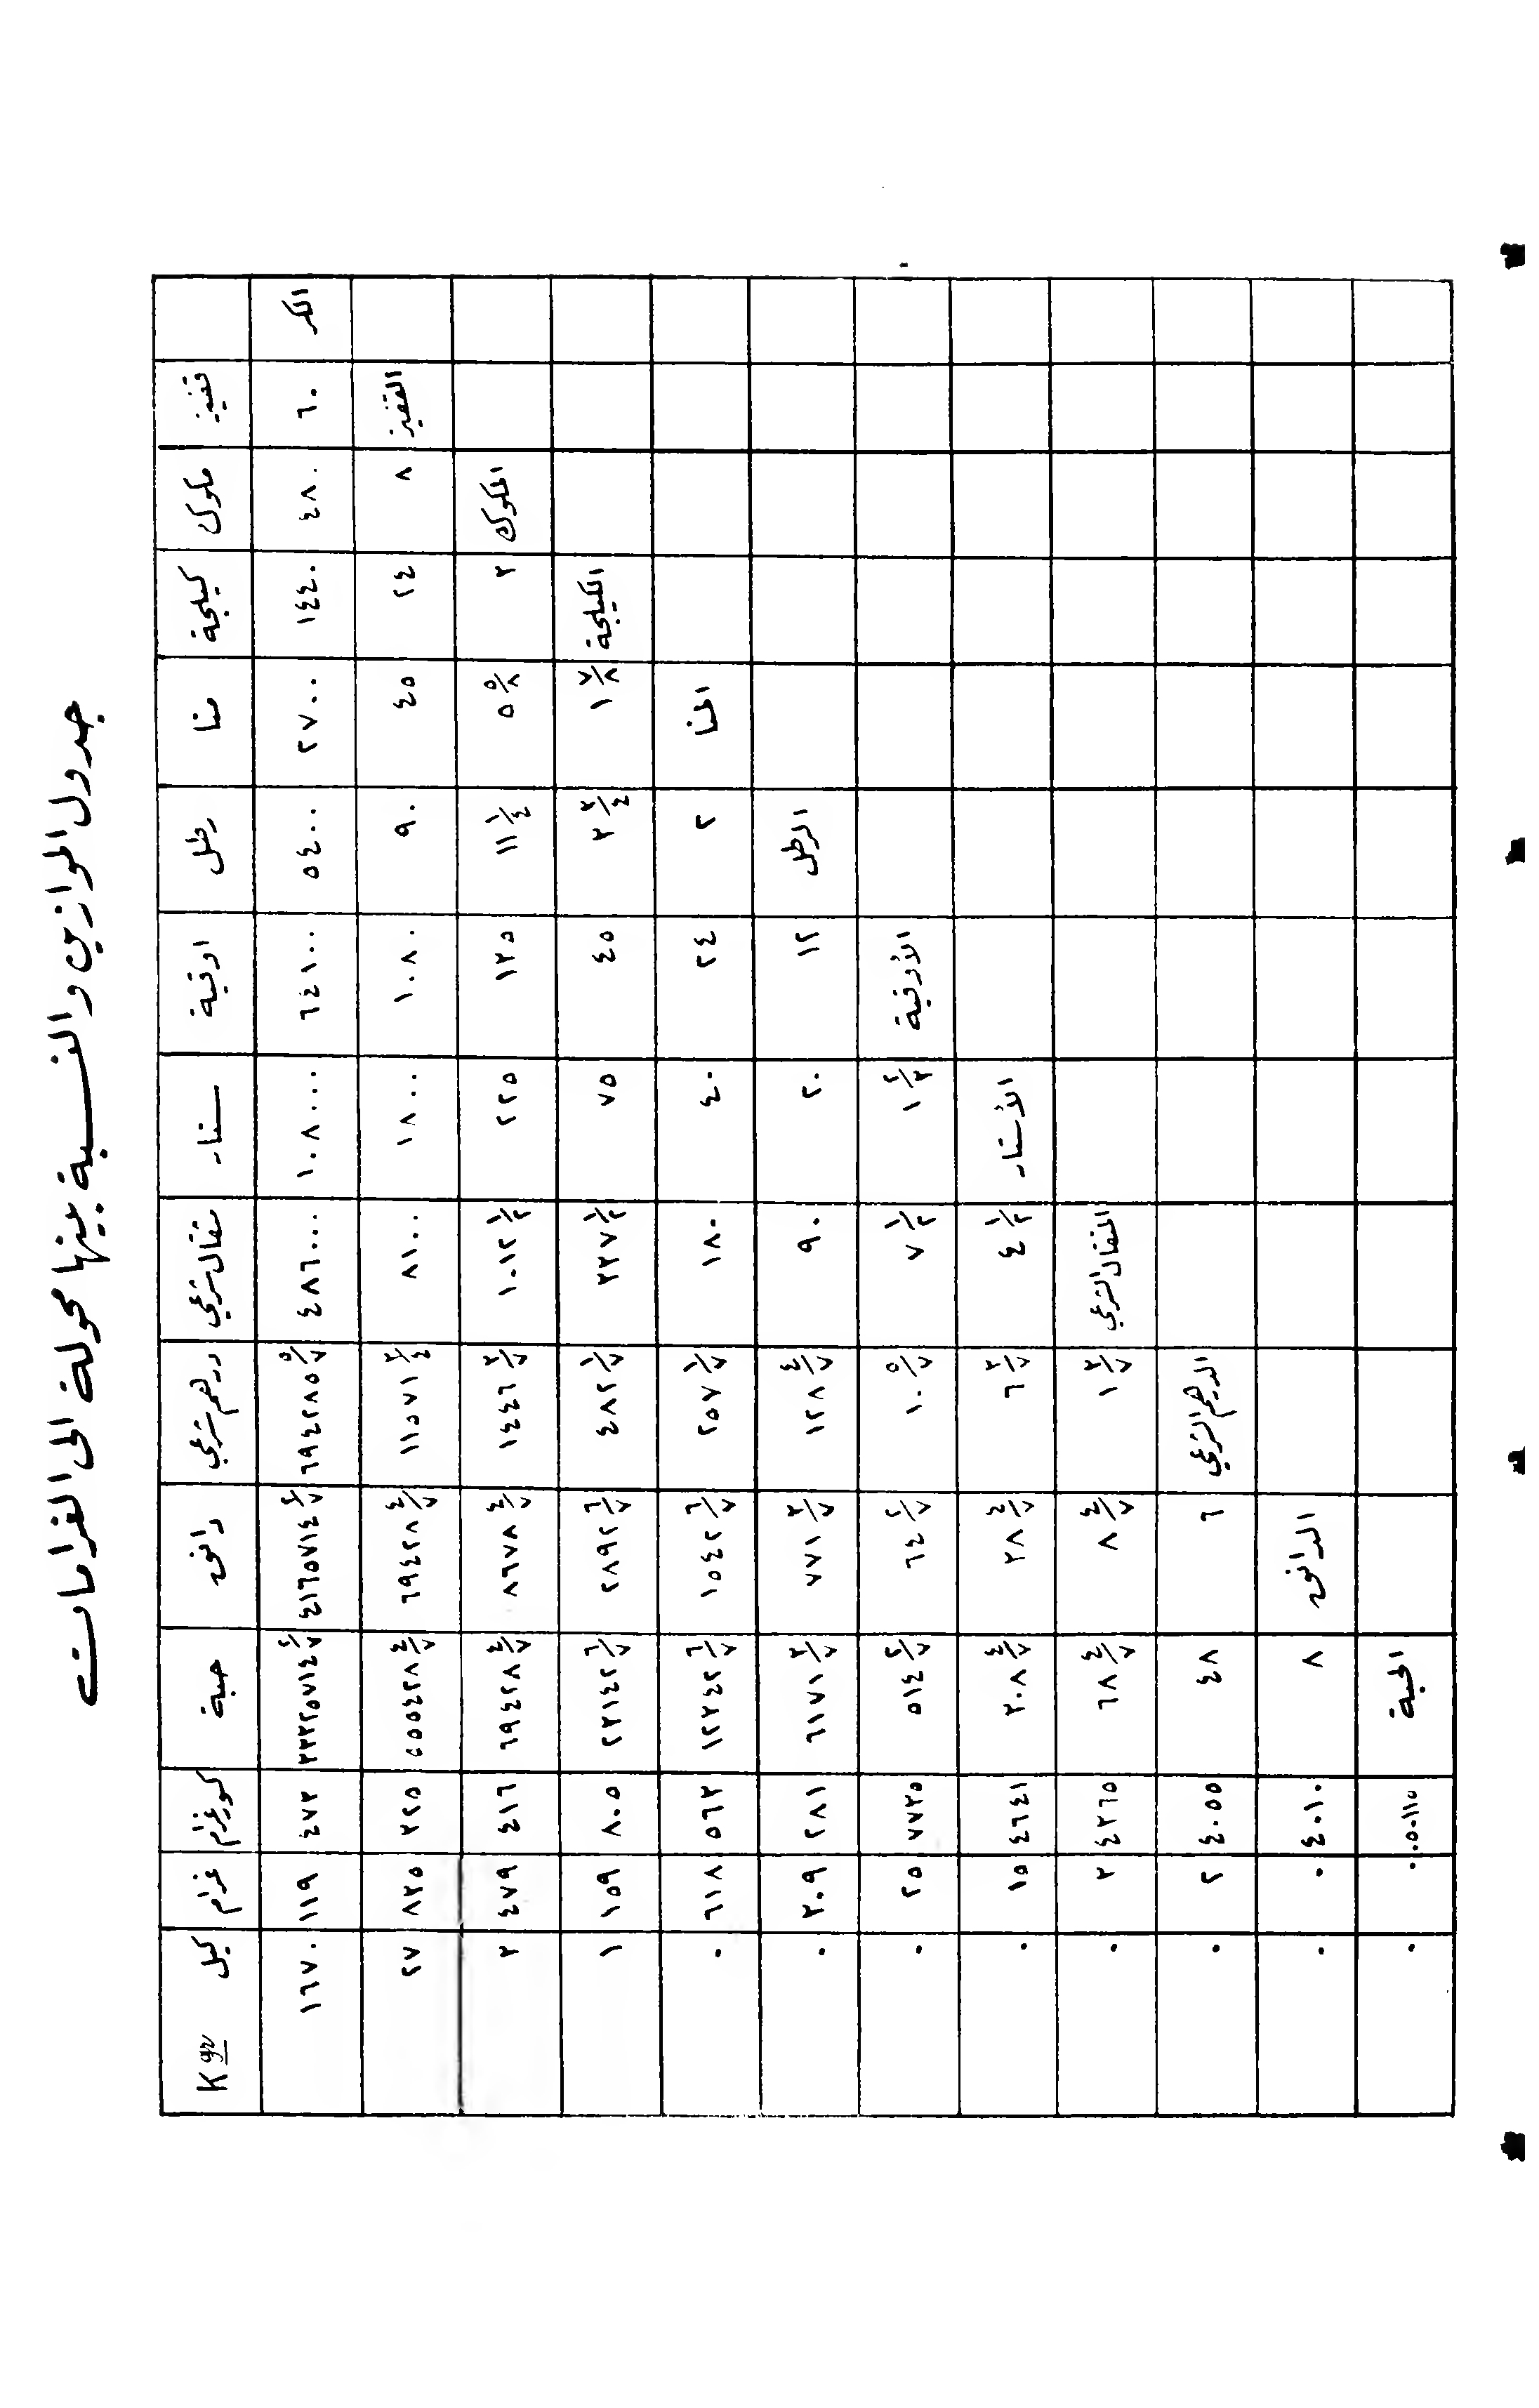 جدول الموازين والنسبة بينها محولة الى الغرامات
قفيز مكوك كيلجة منا رطل اوقية ستار مثقال شرعي درهم شرعي دانق حبة كسور غرام غرام كيل Kgr
الكر ٦٠ ٤٨٠ ١٤٤٠ ٢٧٠٠ ٥٤٠٠ ٦٤١٠٠ ١٠٨٠٠٠ ٤٨٦٠٠٠ ٦٩٤٢٨٥ ٥/٧ ٤١٦٥٧١٤ ٢/٧ ٣٣٣٢٥٧١٤ ٢/٧ ٤٧٣ ١١٩ ١٦٧٠
القفيز ٨ ٢٤ ٤٥ ٩٠ ١٠٨٠ ١٨٠٠ ٨١٠٠ ١١٥٧١ ٣/٤ ٦٩٤٢٨ ٤/٧ ٥٥٥٤٢٨ ٤/٧ ٣٢٥ ٨٣٥ ٢٧
المكوك ٣ ٥ ٥/٨ ١١ ١/٤ ١٣٥ ٢٢٥ ١٠١٢ ١/٢ ١٤٤٦ ٣/٧ ٨٦٧٨ ٤/٧ ٦٩٤٢٨ ٤/٧ ٤١٦ ٤٧٩ ٣
الكيلجة ١ ٧/٨ ٣ ٣/٤ ٤٥ ٧٥ ٣٣٧ ١/٢ ٤٨٢ ١/٧ ٢٨٩٢ ٦/٧ ٢٣١٤٢ ٦/٧ ٨٠٥ ١٥٩ ١
المنا ٢ ٢٤ ٤٠ ١٨٠ ٢٥٧ ١/٧ ١٥٤٢ ٦/٧ ١٢٣٤٢ ٦/٧ ٥٦٣ ٦١٨ ٠
الرطل ١٢ ٢٠ ٩٠ ١٢٨ ٤/٧ ٧٧١ ٣/٧ ٦١٧١ ٣/٧ ٢٨١ ٣٠٩ ٠
الأوقية ١ ٢/٣ ٧ ١/٢ ١٠ ٥/٧ ٦٤ ٢/٧ ٥١٤ ٢/٧ ٧٧٣٥ ٢٥ ٠
الأستار ٤ ١/٢ ٦ ٣/٧ ٣٨ ٤/٧ ٣٠٨ ٤/٧ ٤٦٤١ ١٥ ٠
المثقال الشرعي ١ ٣/٧ ٨ ٤/٧ ٦٨ ٤/٧ ٤٣٦٥ ٣ ٠
الدرهم الشرعي ٦ ٤٨ ٤٠٥٥ ٢ ٠
الدانق ٨ ٤٠١٠ ٠ ٠
الحبة ٠٥٠١١٥ ٠ ٠